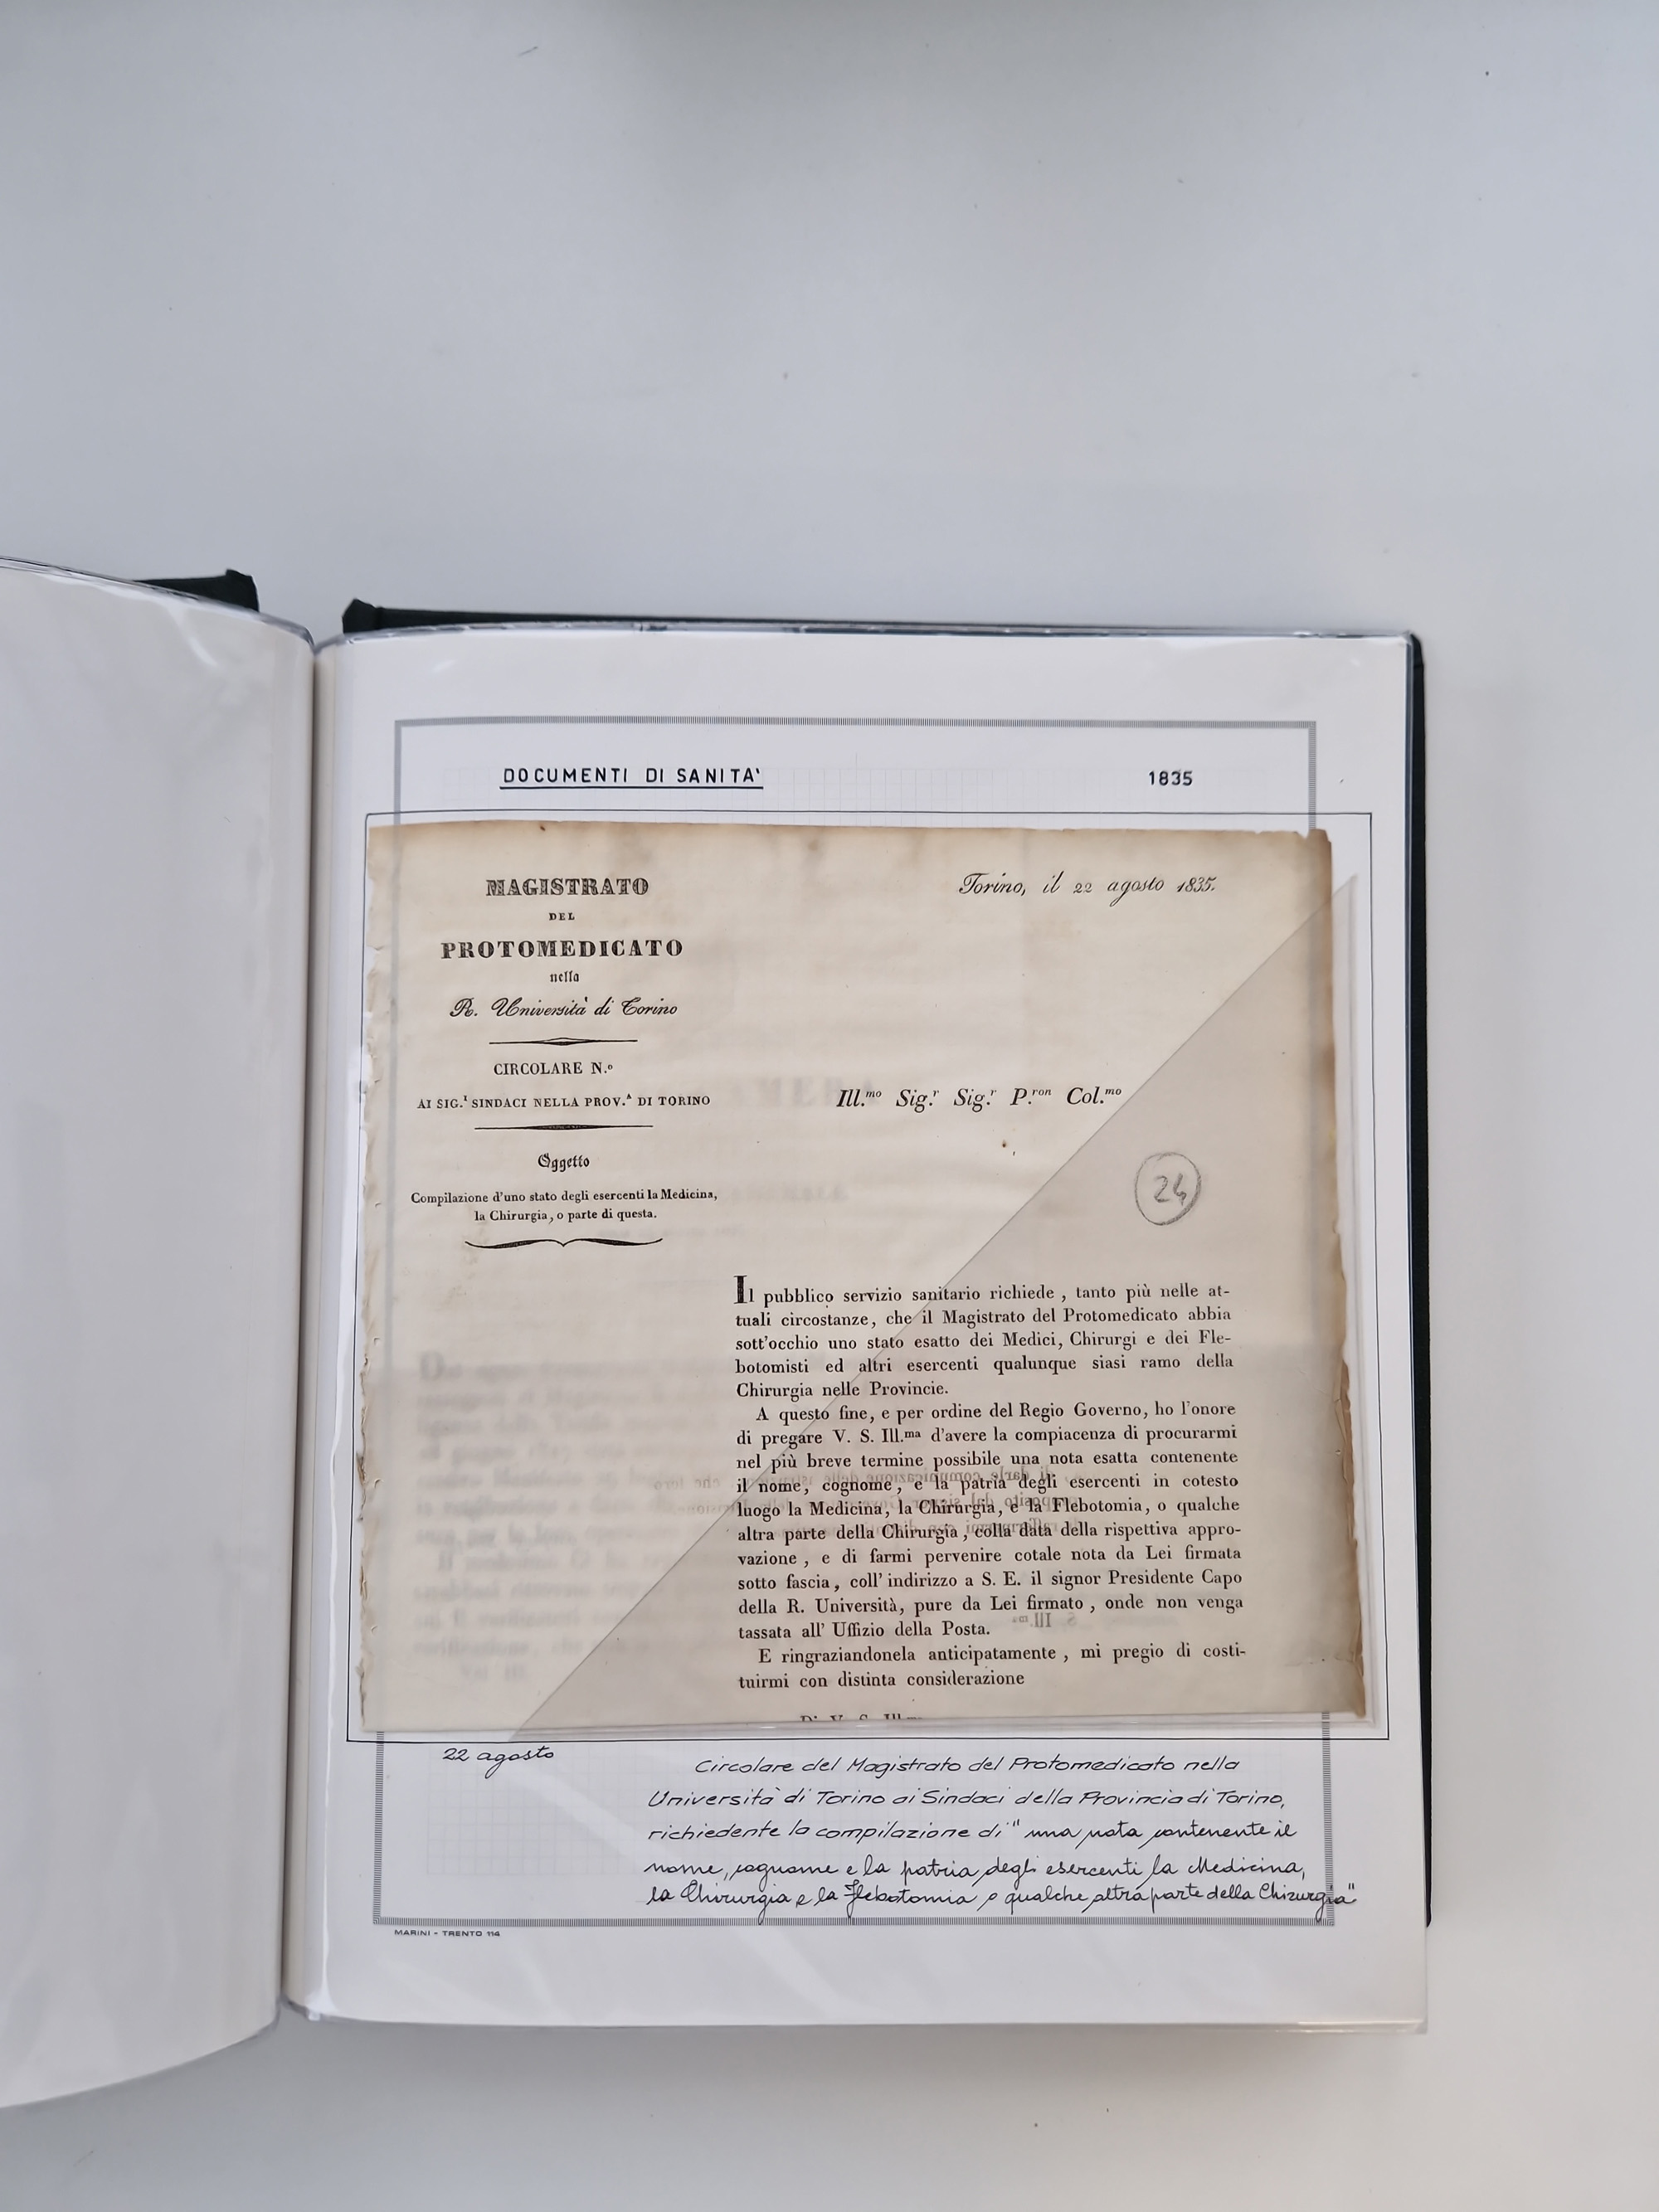 DOCUMENTI DI SANITA' 1835
MAGISTRATO
DEL
PROTOMEDICATO
nella
R. Università di Torino
CIRCOLARE N.º
AI SIG.ᴵ SINDACI NELLA PROV.ᴬ DI TORINO
Oggetto
Compilazione d'uno stato degli esercenti la Medicina,
la Chirurgia, o parte di questa.
Torino, il 22 agosto 1835.
Ill.ᵐᵒ Sig.ʳ Sig.ʳ P.ʳᵒⁿ Col.ᵐᵒ
24
Il pubblico servizio sanitario richiede, tanto più nelle at-
tuali circostanze, che il Magistrato del Protomedicato abbia
sott'occhio uno stato esatto dei Medici, Chirurgi e dei Fle-
botomisti ed altri esercenti qualunque siasi ramo della
Chirurgia nelle Provincie.
A questo fine, e per ordine del Regio Governo, ho l'onore
di pregare V. S. Ill.ᵐᵃ d'avere la compiacenza di procurarmi
nel più breve termine possibile una nota esatta contenente
il nome, cognome, e la patria degli esercenti in cotesto
luogo la Medicina, la Chirurgia, e la Flebotomia, o qualche
altra parte della Chirurgia, colla data della rispettiva appro-
vazione, e di farmi pervenire cotale nota da Lei firmata
sotto fascia, coll'indirizzo a S. E. il signor Presidente Capo
della R. Università, pure da Lei firmato, onde non venga
tassata all'Uffizio della Posta.
E ringraziandonela anticipatamente, mi pregio di costi-
tuirmi con distinta considerazione
Di V. S. Ill.ᵐᵃ
22 agosto
Circolare del Magistrato del Protomedicato nella
Università di Torino ai Sindaci della Provincia di Torino,
richiedente la compilazione di "una nota contenente il
nome, cognome e la patria degli esercenti la Medicina,
la Chirurgia e la Flebotomia o qualche altra parte della Chirurgia"
MARINI - TRENTO 114